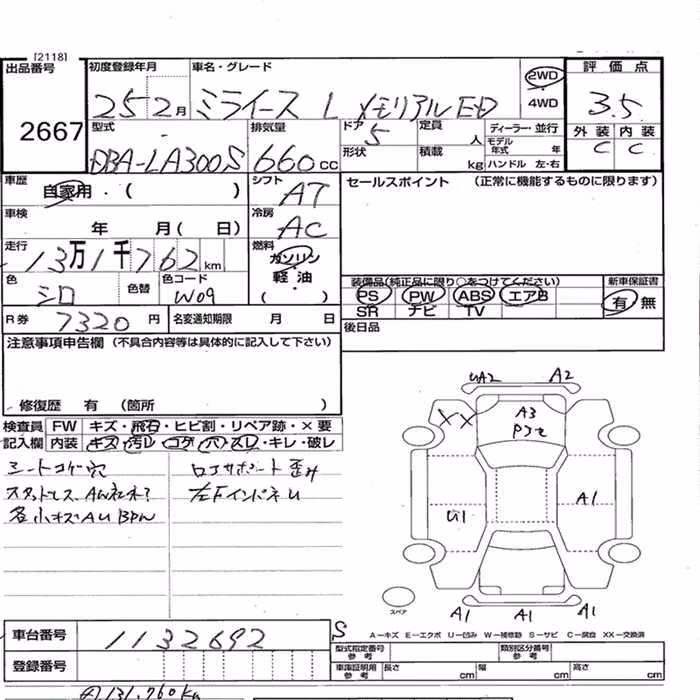 [2118]
出品番号 初度登録年月 車名・グレード 2WD 評価点
25 2月 ミライース L メモリアルED 4WD 3.5
2667 型式 排気量 ドア 5 定員 人 ディーラー・並行 外装 内装
DBA-LA300S 660cc 形状 積載 kg モデル年式 年 C C
ハンドル 左・右
車歴 自家用・( ) シフト AT セールスポイント (正常に機能するものに限ります)
車検 年 月( 日) 冷房 AC
走行 13万1千762km 燃料 ガソリン
色 シロ 色替 色コード W09 軽油 ( )
装備品(純正品に限り○をつけてください) 新車保証書
PS PW ABS エアB 有 無
SR ナビ TV
R券 7320円 名変通知期限 月 日 後日品
注意事項申告欄 (不具合内容等は具体的に記入して下さい)
修復歴 有 (箇所 )
検査員 FW キズ・飛石・ヒビ割・リペア跡・×要
記入欄 内装 キズ・汚レ・コゲ・穴・スレ・キレ・破レ
シートコゲ穴 ロアサポート歪み
左下インドネU
各小キズAU
UA2 A2
XX A3
U1 A1
A1 A1 A1
スペア
S
A－キズ E－エクボ U－凹み W－補修跡 S－サビ C－腐食 XX－交換済
車台番号 1132692
登録番号
型式指定番号 参考 類別区分番号 参考
車庫証明用 参考 長さ cm 幅 cm 高さ cm
131,760Km